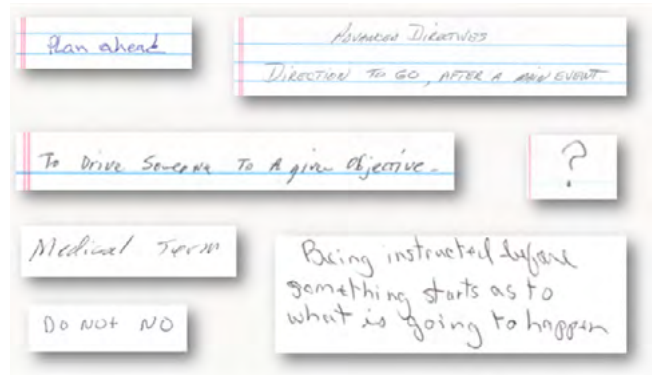 Plan ahead
Advanced Directives
Direction to go, after a main event.
To Drive Someone To A given Objective.
?
Medical Term
Do Not No
Being instructed before
something starts as to
what is going to happen